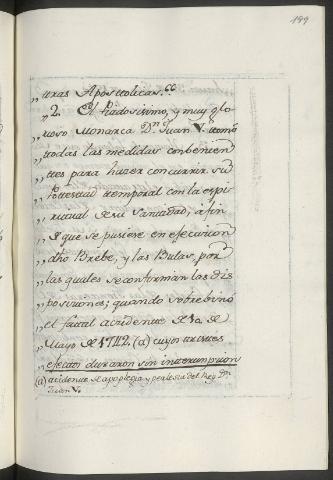 199
„ turas Apostolicas. cc
„ 2. El piadosisimo, y muy glo
„ rioso Monarca Dn. Juan V. tomò
„ todas las medidas combenien
„ tes para hazer concurrir su
„ Potestad temporal con la espi
„ ritual de su Santidad, a fin
„ de que se pusiese en efecucion
„ dho Brebe, y las Bulas, por
„ las quales se conforman las dis
„ posiciones; quando sobrebino
„ el fatal accidente de 10. de
„ Mayo de 1742. (a) cuyos tristes
„ efectos duraron sin interrumpcion
(a) acidente de apoplegia y perlesia del Rey Dn.
Juan V.